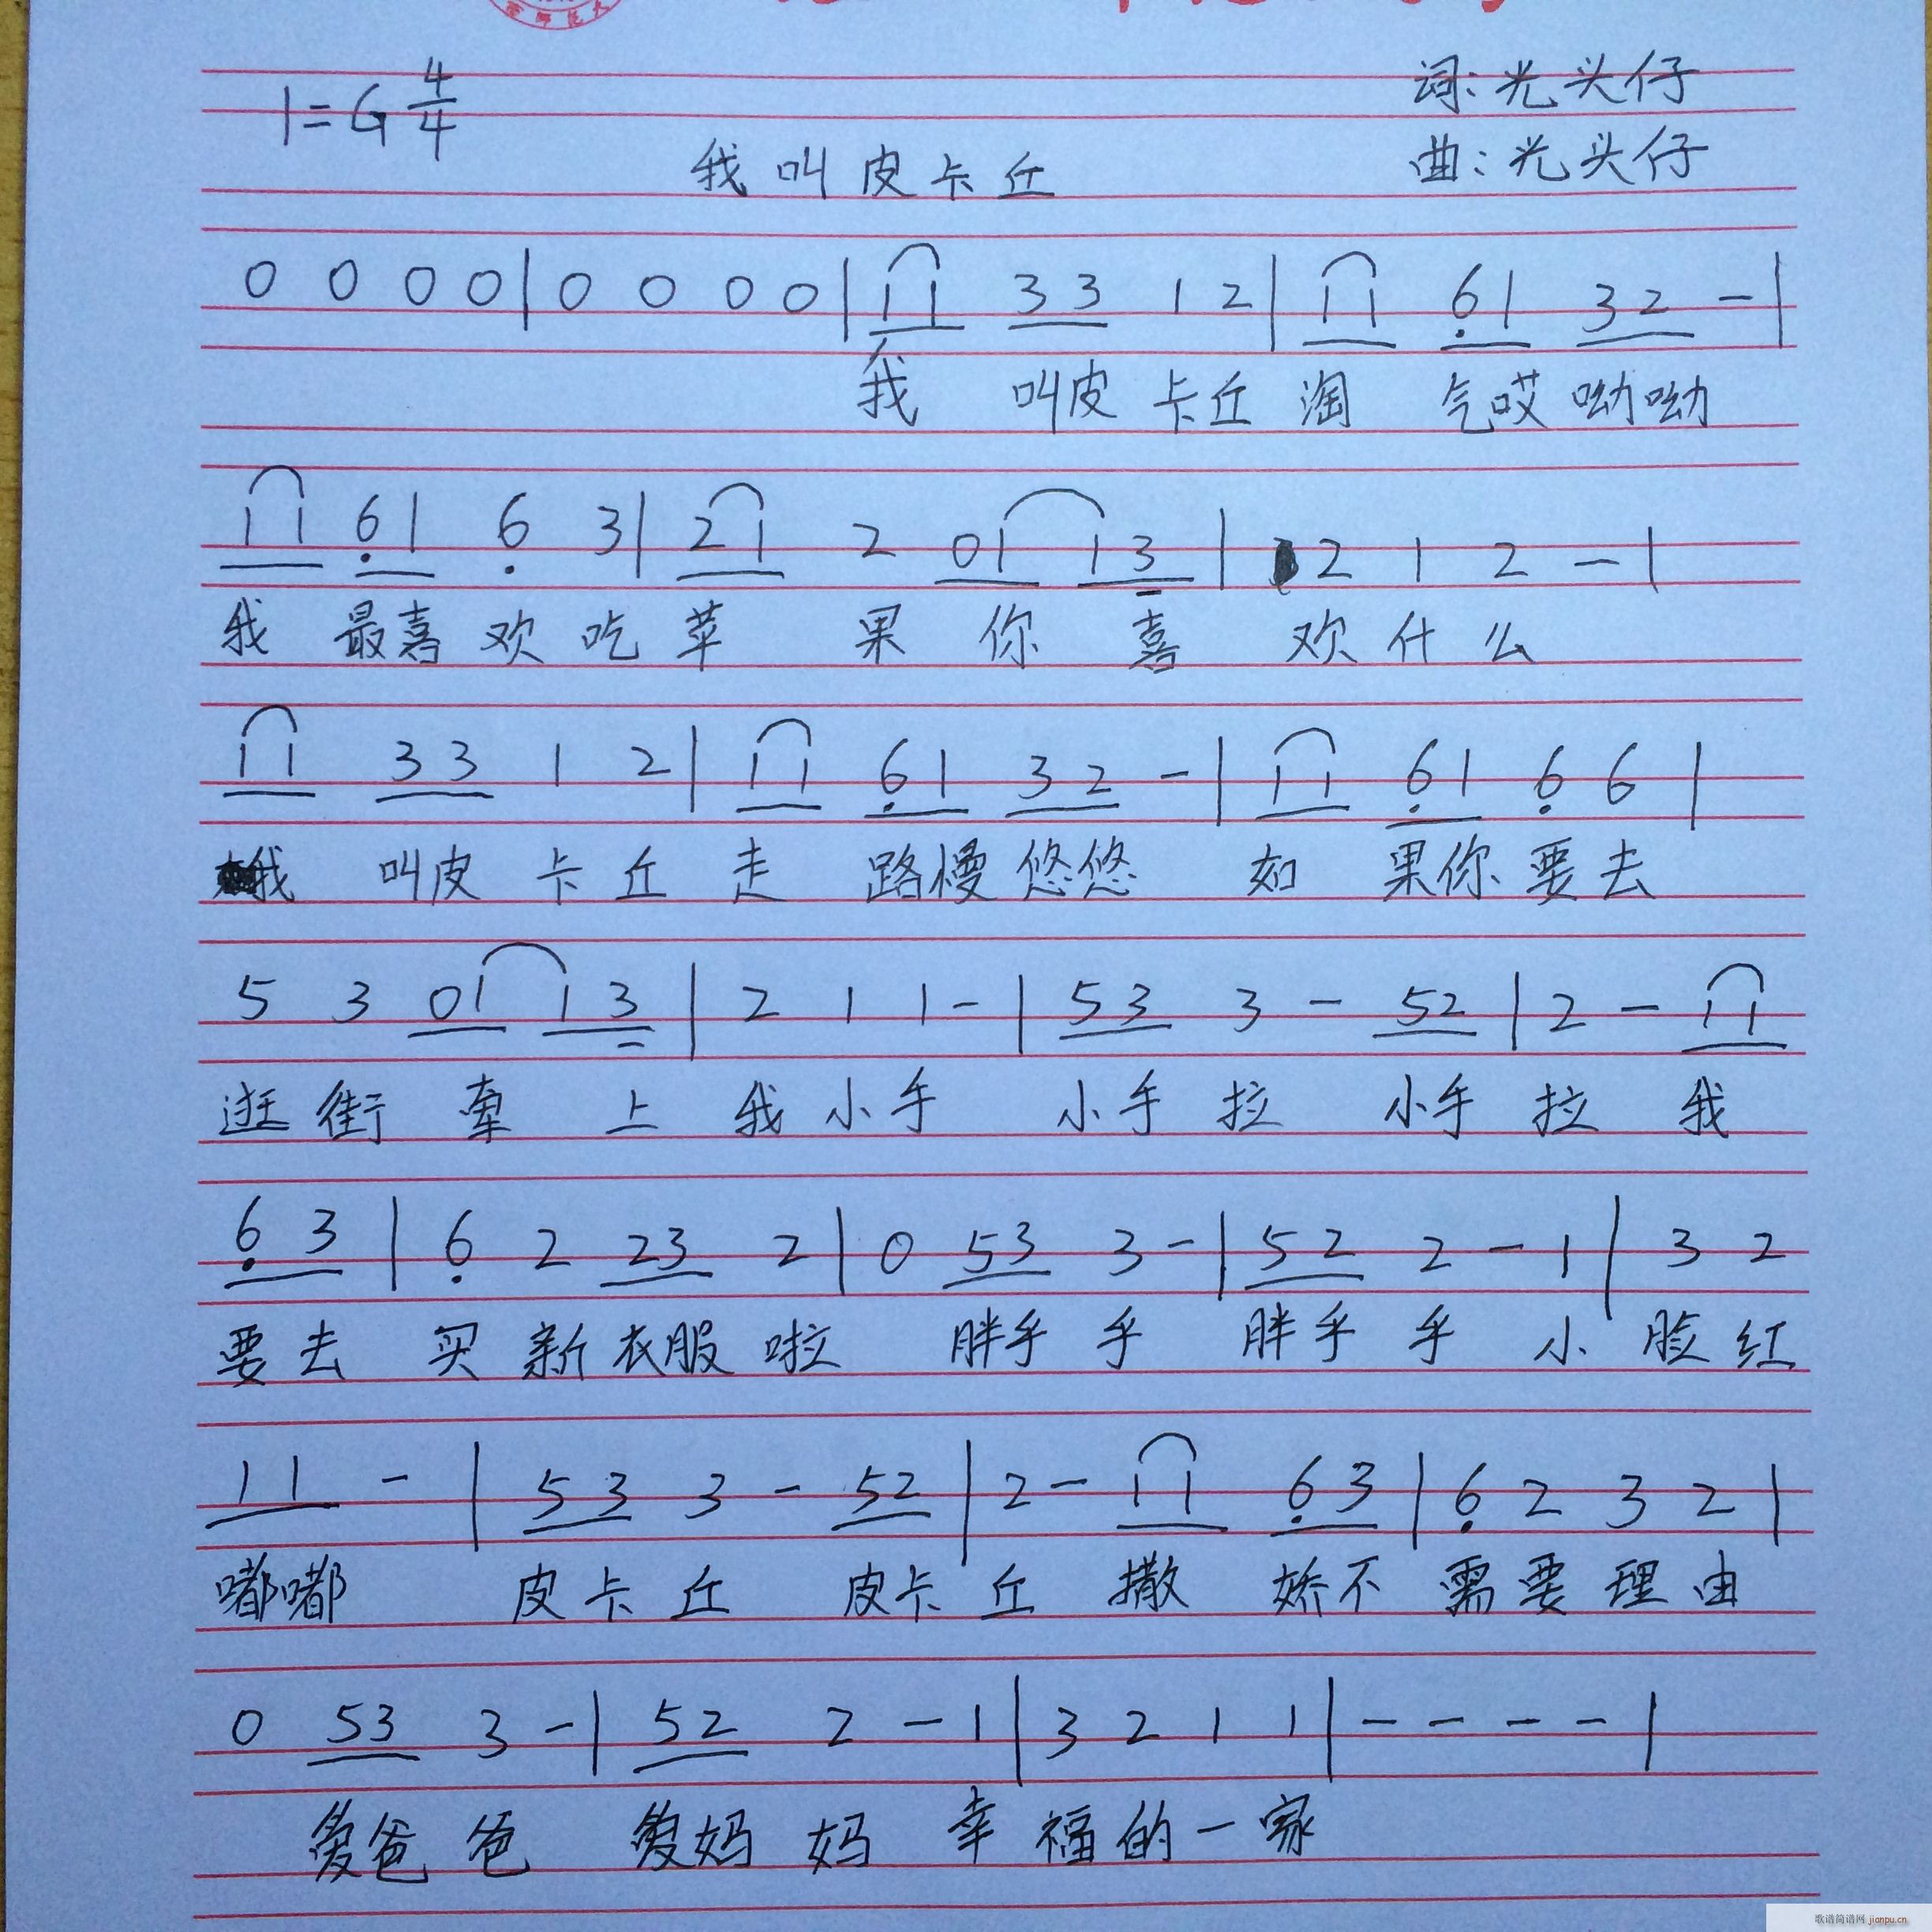 我叫皮卡丘
词:光头仔
1=G 4/4
曲:光头仔
0 0 0 0 | 0 0 0 0 | 1 1 3 3 1 2 | 1 1 6 1 3 2 - |
我 叫皮 卡丘 淘 气哎 呦呦
1 1 6 1 6 3 | 2 1 2 0 1 1 3 | 2 1 2 - |
我 最喜 欢 吃 苹 果 你 喜 欢 什 么
1 1 3 3 1 2 | 1 1 6 1 3 2 - | 1 1 6 1 6 6 |
我 叫皮 卡 丘 走 路慢 悠悠 如 果你 要去
5 3 0 1 1 3 | 2 1 1 - | 5 3 3 - 5 2 | 2 - 1 1
逛 街 牵 上 我 小 手 小 手 拉 小手 拉 我
6 3 | 6 2 2 3 2 | 0 5 3 3 - | 5 2 2 - 1 | 3 2
要 去 买 新 衣服 啦 胖手 手 胖手 手 小 脸 红
1 1 - | 5 3 3 - 5 2 | 2 - 1 1 6 3 | 6 2 3 2 |
嘟嘟 皮 卡 丘 皮卡 丘 撒 娇不 需 要 理 由
0 5 3 3 - | 5 2 2 - 1 | 3 2 1 1 | - - - - |
爱爸 爸 爱妈 妈 幸 福 的 一 家
歌谱简谱网 jianpu.cn